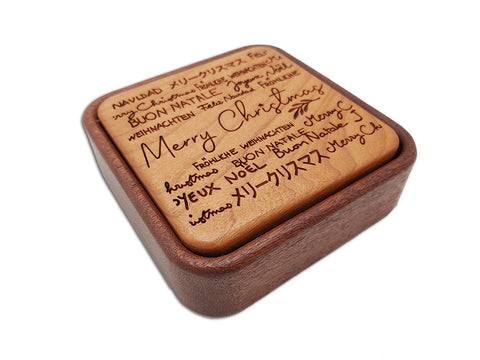 NAVIDAD メリークリスマス FELI
rry Christmas FRÖHLICHE WEIHNACHTEN Joyeux Noël
BUON NATALE Feliz Navidad FRÖHLICHE
WEIHNACHTEN Merry Christmas
FRÖHLICHE WEIHNACHTEN Merry C
hristmas BUON NATALE Buon Natale J
OYEUX NOËL メリークリスマス Merry Ch
ristmas